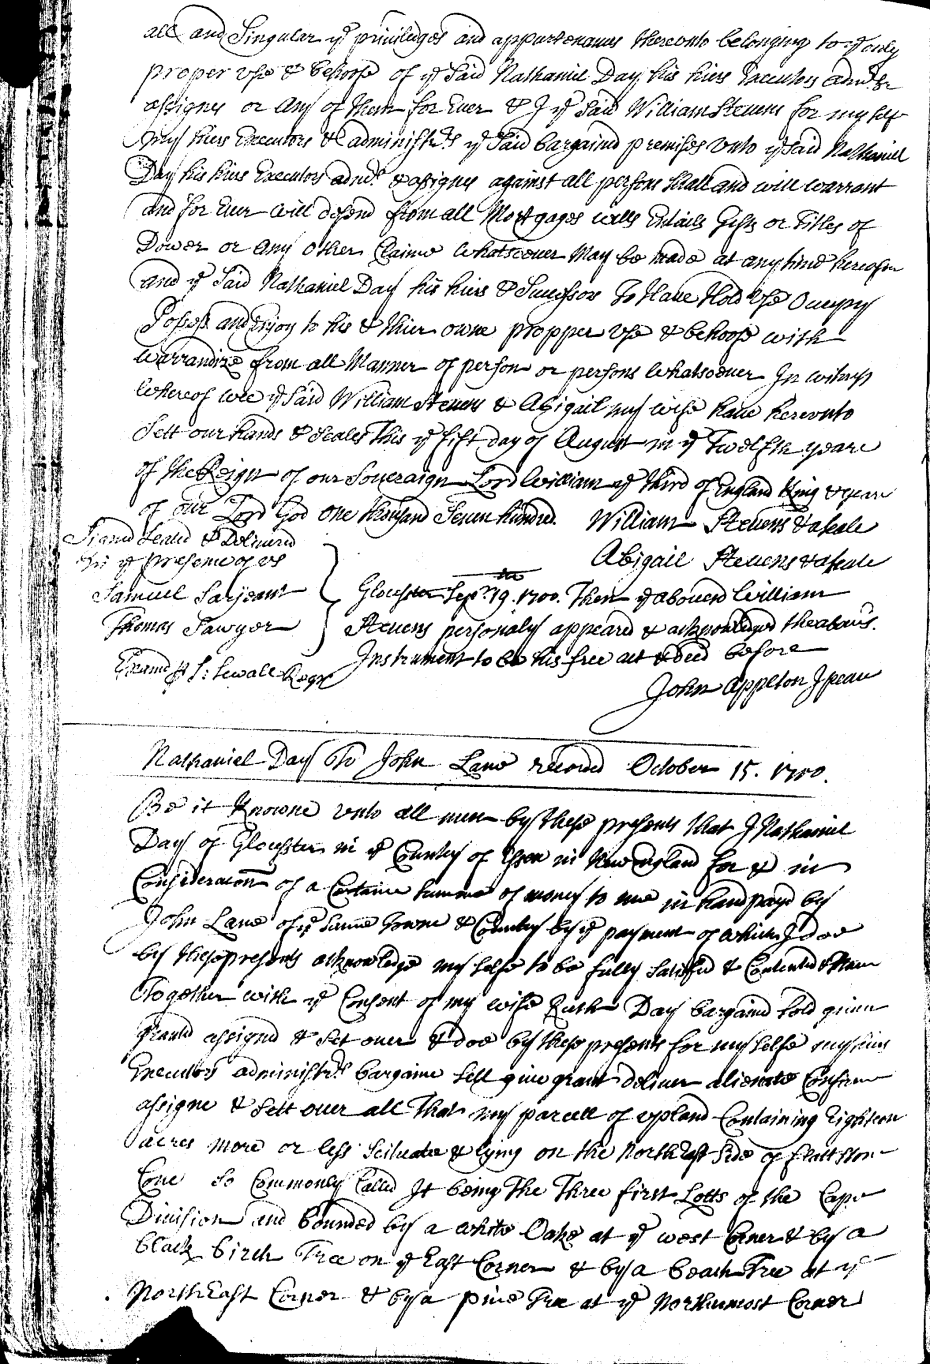 all and Singular ye priviledges and appurtenances thereonto belonging to ye only
proper use & behoofe of ye said Nathaniel Day his heirs Executors admrs &
assignes or any of them for Ever & I ye said William Stevens for my self
my heirs Executors & administrs ye said bargaind premises unto ye said Nathaniel
Day his heirs Executors admrs & assignes against all persons shall and will warrant
and for Ever will defend from all Mortgages wills Entails Gifts or Titles of
Dower or any other Claime whatsoever May be made at any time hereafter
and ye said Nathaniel Day his heirs & Successors To Have Hold Use Occupy
Posess and Enjoy to his & their owne propper use & behoofe with
warrandize from all Manner of person or persons whatsoever In witness
whereof wee ye said William Stevens & Abigail my wife have hereunto
Sett our hands & Seales This ye first day of August in ye Twelfth yeare
of the Reign of our Soveraign Lord William ye third of England King & yeare
of our Lord God one thousand Seven hundred. William Stevens & a seale
Signed Sealed & Delivered
in ye presence of us
Abigail Stevens & a seale
Samuel Sarjeant
Thomas Sawyer
Glocester Septr. 19. 1700. Then ye aboved William
Stevens personaly appeared & acknowledged the above
Instrument to be his free act & deed before
Examd p S: Sewall Regr
John Appleton J peace
Nathaniel Day To John Lane recorded October 15. 1700.
Be it Knowne unto all men by these presents that I Nathaniel
Day of Glocester in ye County of Essex in New England for & in
Consideration of a Certaine summe of money to me in hand payd by
John Lane of ye same Towne & County by ye payment of which I doe
by these presents acknowledge my selfe to be fully satisfied & Contented & have
Together with ye Consent of my wife Ruth Day bargaind sold given
grantd assignd & set over & doe by these presents for my selfe my heirs
Executors administrs bargaine sell give grant deliver alienate Confirm
assigne & Sett over all That my parcell of upland Containing Eighteen
acres more or less scituate & lying on the NorthEast side of flatt ston
Cove so Commonly Called It being The Three first Lotts of the Cape
Division and bounded by a white Oake at ye west Corner & by a
black birch Tree on ye East Corner & by a beach Tree at ye
NorthEast Corner & by a pine Tree at ye Northermost Corner